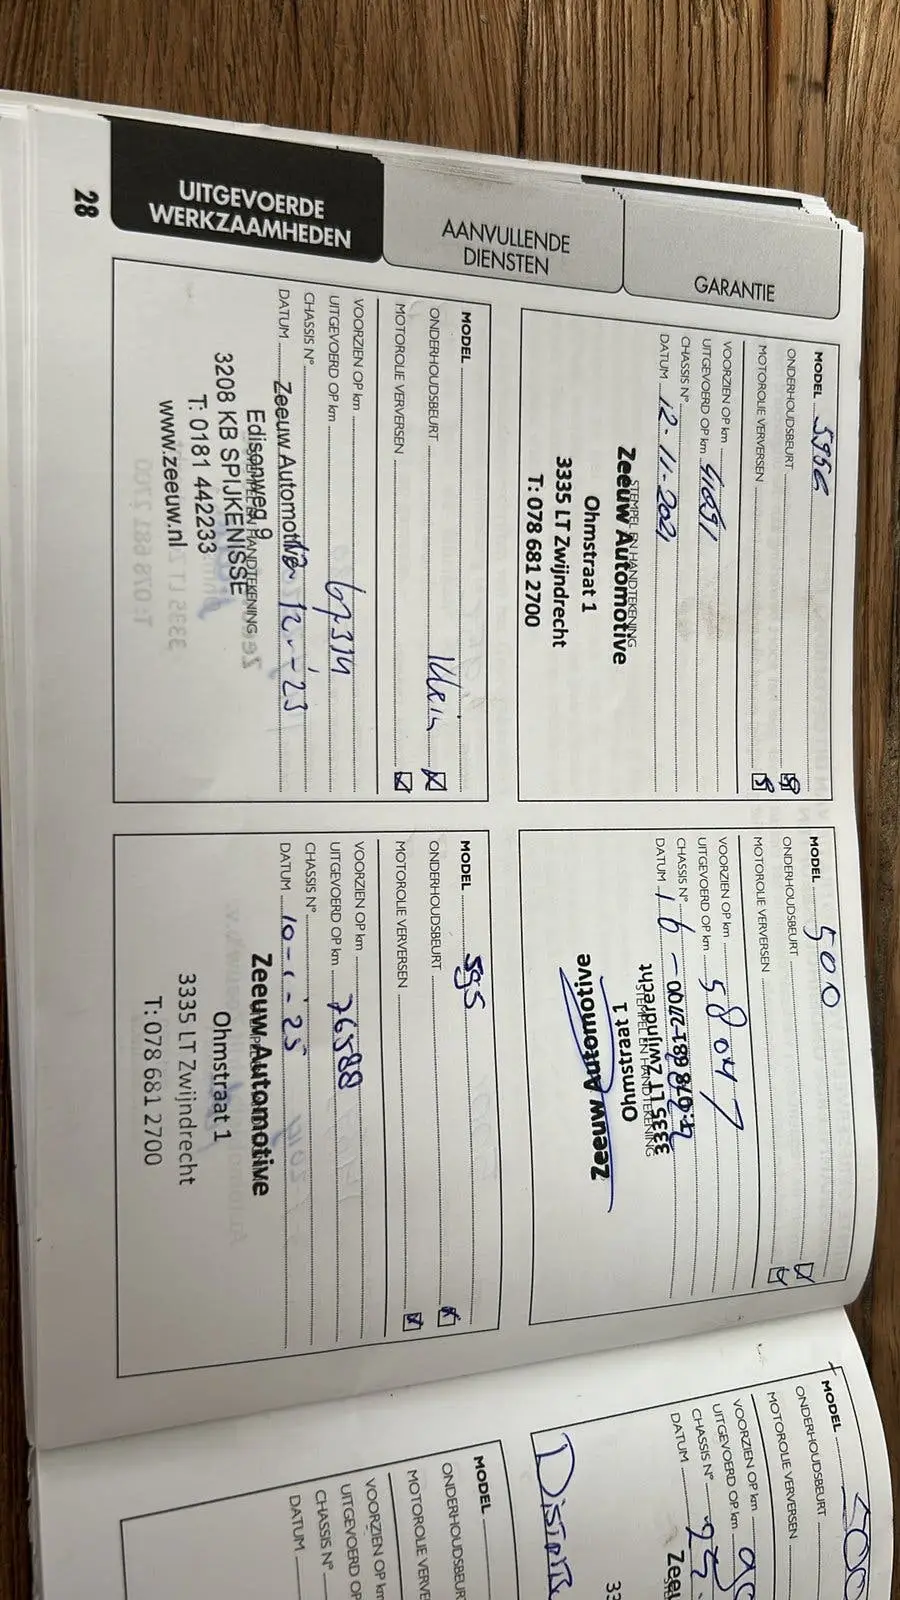 GARANTIE
AANVULLENDE
DIENSTEN
UITGEVOERDE
WERKZAAMHEDEN
28
MODEL 595c
ONDERHOUDSBEURT
MOTOROLIE VERVERSEN
VOORZIEN OP km
UITGEVOERD OP km
CHASSIS N°
DATUM 12-11-2021
STEMPEL EN HANDTEKENING
Zeeuw Automotive
Ohmstraat 1
3335 LT Zwijndrecht
T: 078 681 2700
MODEL 500
ONDERHOUDSBEURT
MOTOROLIE VERVERSEN
VOORZIEN OP km
UITGEVOERD OP km 58047
CHASSIS N°
DATUM 16 -
STEMPEL EN HANDTEKENING
T: 078 681 2700
3335 LT Zwijndrecht
Ohmstraat 1
Zeeuw Automotive
MODEL
ONDERHOUDSBEURT Klein
MOTOROLIE VERVERSEN
VOORZIEN OP km
UITGEVOERD OP km 67314
CHASSIS N°
DATUM
Zeeuw Automotive
Edisonweg 9
STEMPEL EN HANDTEKENING
3208 KB SPIJKENISSE
T: 0181 442233
www.zeeuw.nl
MODEL 595
ONDERHOUDSBEURT
MOTOROLIE VERVERSEN
VOORZIEN OP km
UITGEVOERD OP km 76588
CHASSIS N°
DATUM 10-1-25
Zeeuw Automotive
Ohmstraat 1
3335 LT Zwijndrecht
T: 078 681 2700
MODEL
ONDERHOUDSBEURT
MOTOROLIE VERVERSEN
VOORZIEN OP km
UITGEVOERD OP km
CHASSIS N°
DATUM
MODEL
ONDERHOUDSBEURT
MOTOROLIE VERVE
VOORZIEN OP km
UITGEVOERD OP
CHASSIS N°
DATUM